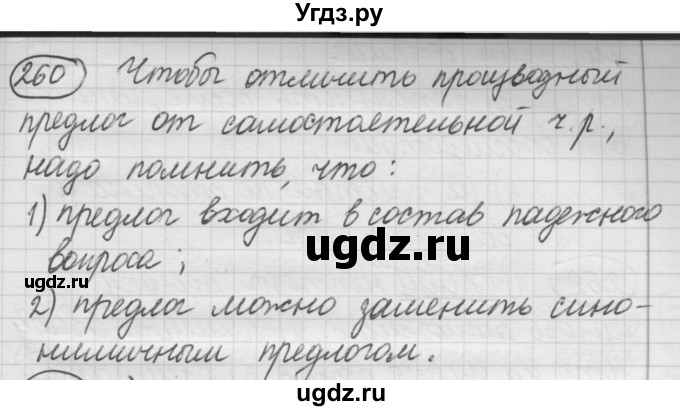 Угдз.ру
260 Чтобы отличить производный
предлог от самостоятельной ч.р.,
надо помнить, что:
1) предлог входит в состав падежного
вопроса;
ugdz.ru
ugdz.ru
2) предлог можно заменить сино-
нимичным предлогом.
ugdz.ru
ugdz.ru